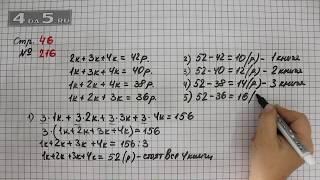 4DA5.RU
Стр. 46
№ 216
2к + 3к + 4к = 42р.
1к + 3к + 4к = 40р.
1к + 2к + 4к = 38р.
1к + 2к + 3к = 36р.
1) 3·1к + 3·2к + 3·3к + 3·4к = 156
3·(1к + 2к + 3к + 4к) = 156
1к + 2к + 3к + 4к = 156 : 3
1к + 2к + 3к + 4к = 52(р) - стоят все 4 книги
2) 52 - 42 = 10(р) - 1 книга
3) 52 - 40 = 12(р) - 2 книга
4) 52 - 38 = 14(р) - 3 книга
5) 52 - 36 = 16(